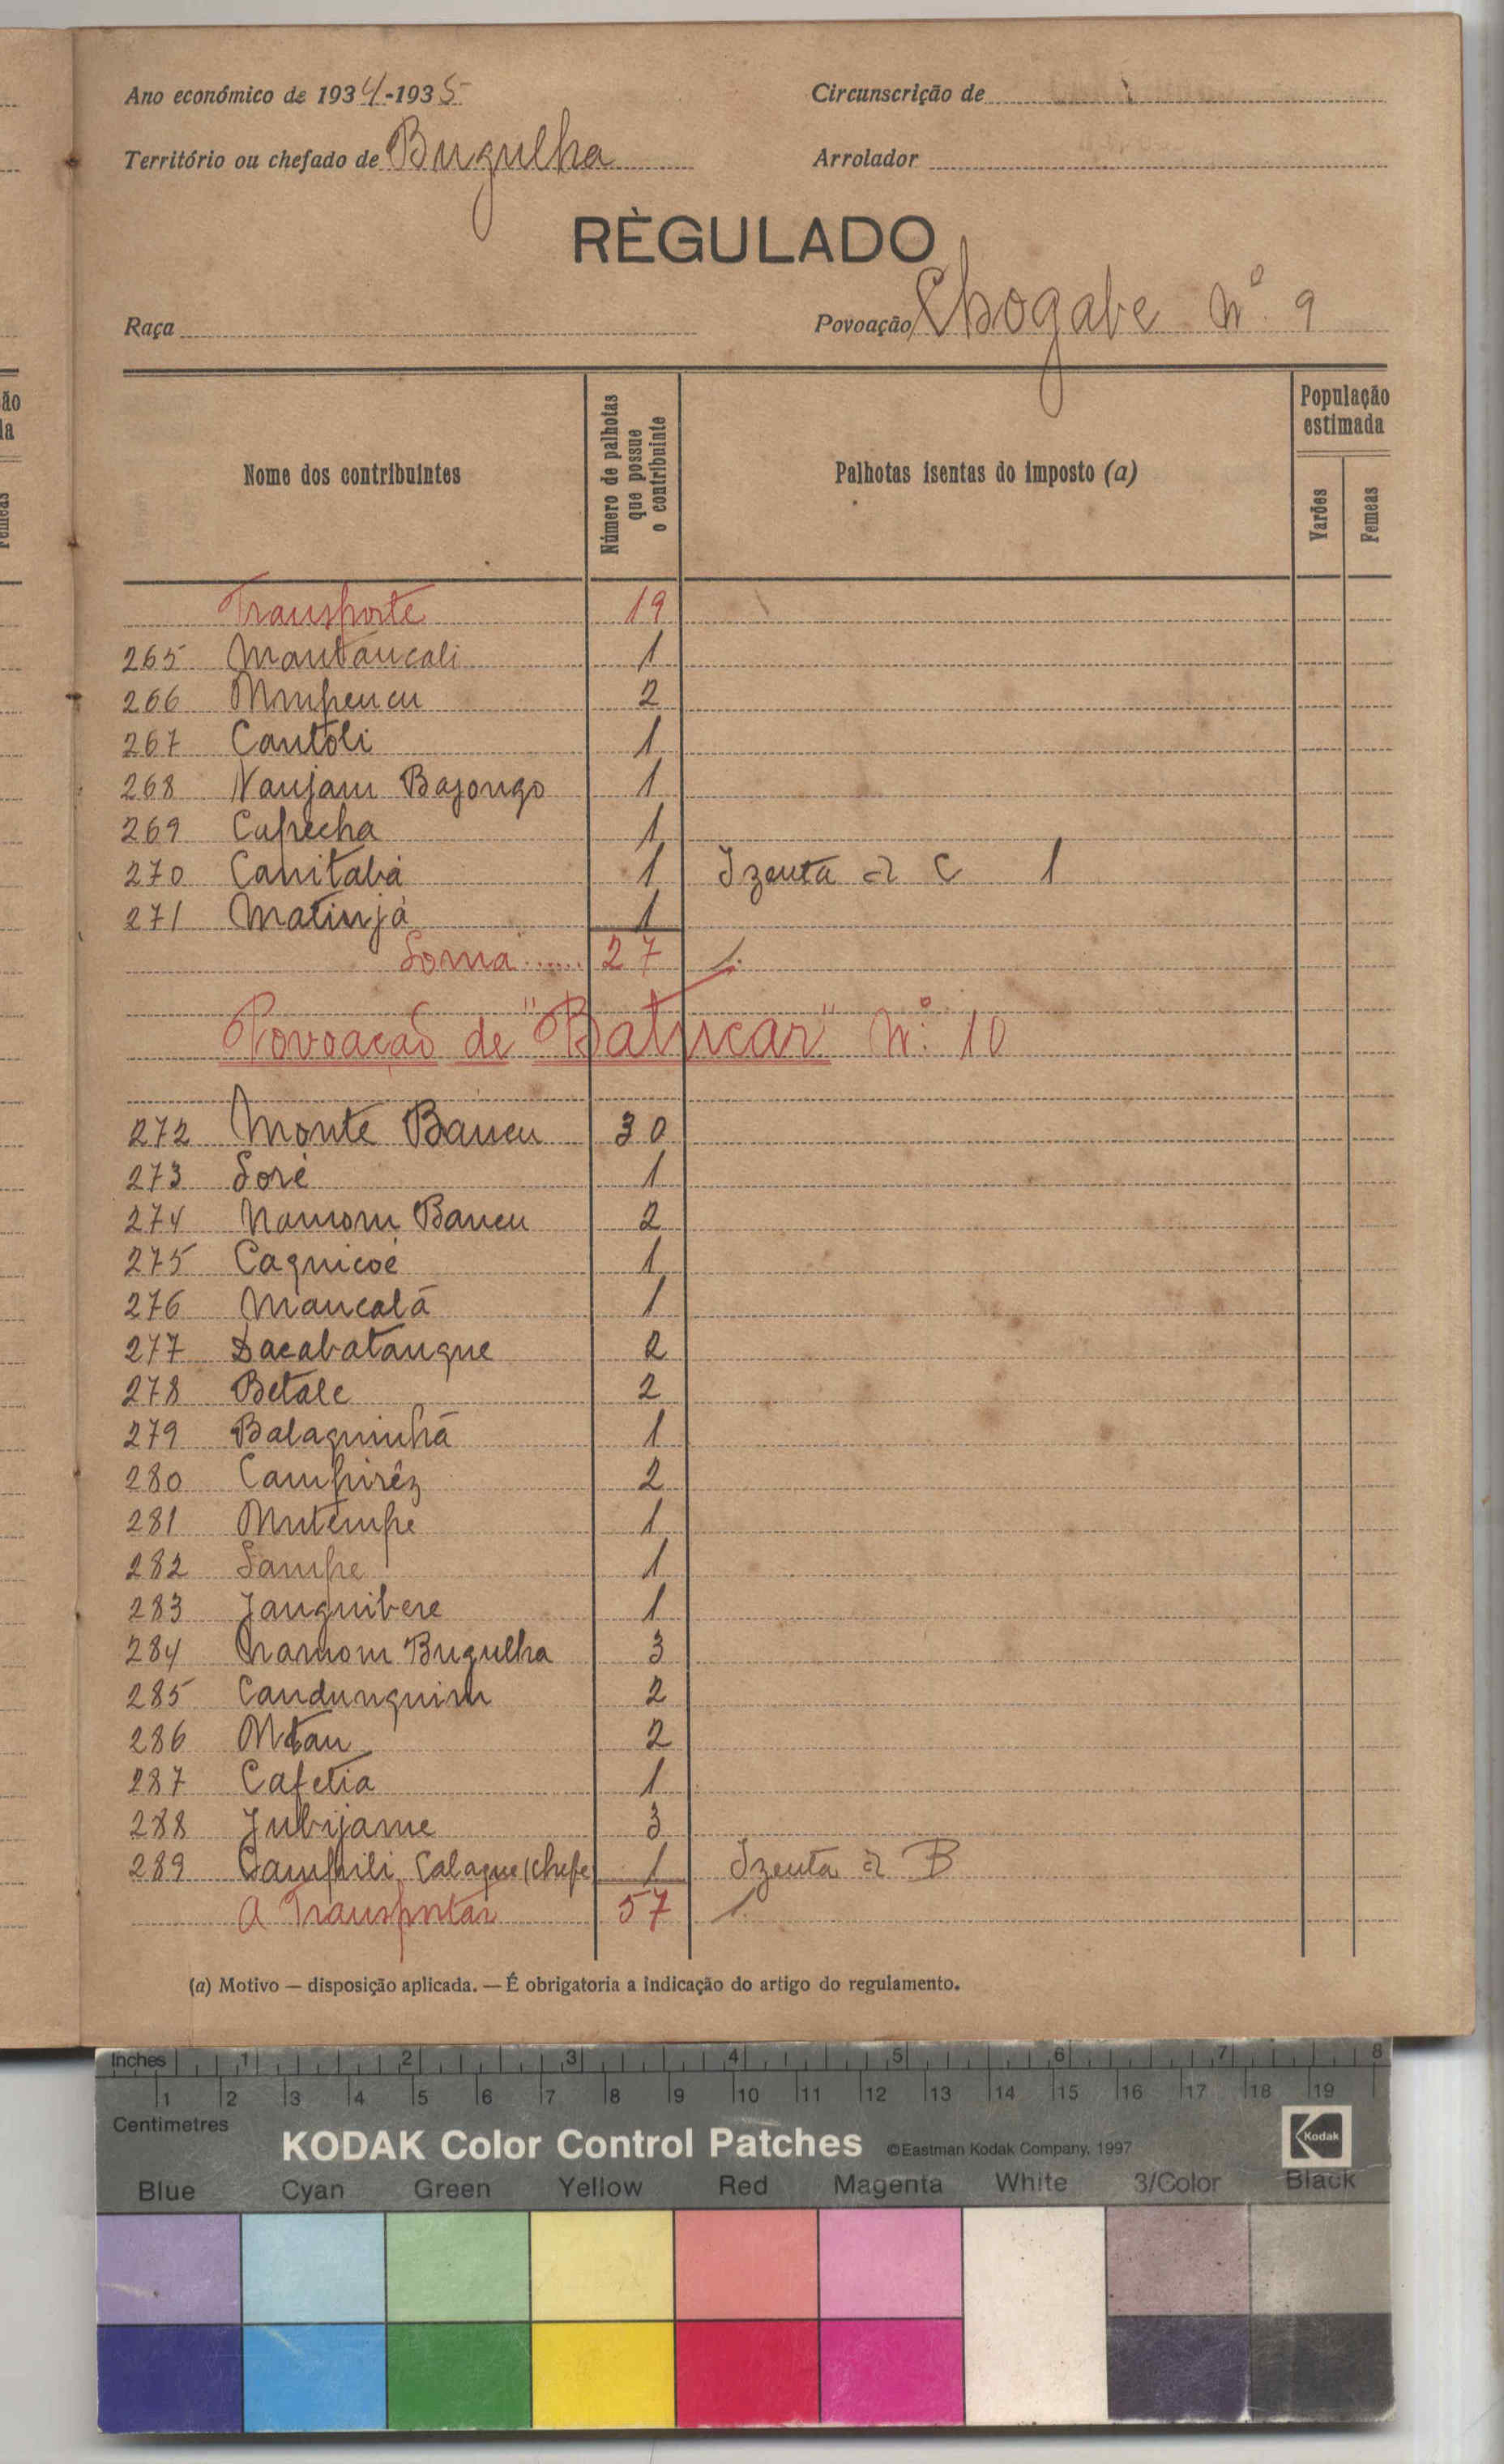 Ano económico de 1934-1935
Circunscrição de
Território ou chefado de Bugulha
Arrolador
RÈGULADO
Raça
Povoação Chogabe Nº 9
Nome dos contribuintes
Número de palhotas que possue o contribuinte
Palhotas isentas do imposto (a)
População estimada
Varões
Femeas
Transporte 19
265 Mantancali 1
266 Mupencu 2
267 Cantoli 1
268 Nanjam Bajongo 1
269 Cupecha 1
270 Canitabá 1 Izenta al C 1
271 Matinjá 1
Soma ...... 27 1.
Povoação de "Batucar" Nº 10
272 Monte Bancu 30
273 Soré 1
274 Namom Bancu 2
275 Caguicoé 1
276 Mancalá 1
277 Dacabatangue 2
278 Betale 2
279 Balaguinhã 1
280 Campiréz 2
281 Mutempe 1
282 Sampe 1
283 Janguibere 1
284 Namom Bugulha 3
285 Candunguim 2
286 Mtan 2
287 Cafetia 1
288 Jubijame 3
289 Campili Calaque (chefe) 1 Izenta al B
A Transportar 57 1.
(a) Motivo — disposição aplicada. — É obrigatoria a indicação do artigo do regulamento.
Inches 1 2 3 4 5 6 7 8
1 2 3 4 5 6 7 8 9 10 11 12 13 14 15 16 17 18 19
Centimetres
KODAK Color Control Patches ©Eastman Kodak Company, 1997 Kodak
Blue Cyan Green Yellow Red Magenta White 3/Color Black